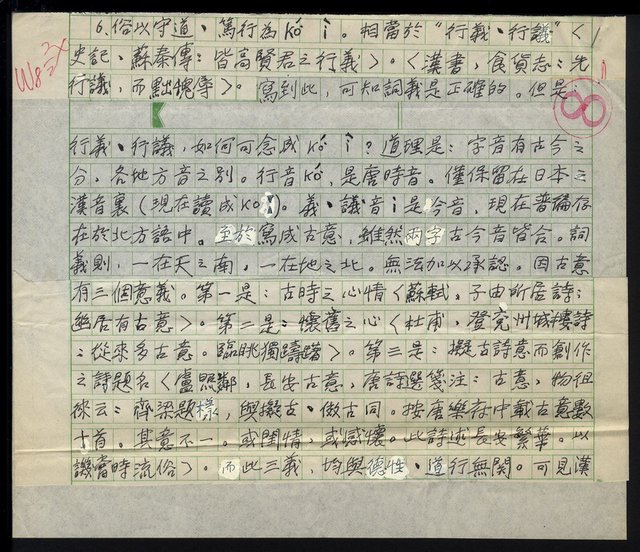 6.俗以守道、篤行為kó î。相當於"行義、行議"〈
史記、蘇秦傳：皆高賢君之行義〉。〈漢書，食貨志：先
行議，而黜愧辱〉。寫到此，可知詞義是正確的。但是：
行義、行議，如何可念成kó î？道理是：字音有古今之
分，各地方音之別。行音kó，是唐時音。僅保留在日本之
漢音裏（現在讀成ko）。義、議音i是今音，現在普徧存
在於北方語中。至於寫成古意，雖然兩字古今音皆合。詞
義則，一在天之南，一在地之北。無法加以承認。因古意
有三個意義。第一是：古時之心情〈蘇軾，子由所居詩：
幽居有古意〉。第二是：懷舊之心〈杜甫，登兗州城樓詩
：從來多古意。臨眺獨躊躇〉。第三是：擬古詩意而創作
之詩題名〈盧照鄰，長安古意，唐詩選箋注：古意，物徂
徠云：齊梁題樣，與擬古、倣古同。按唐樂府中載古意數
十首。其意不一。或閨情，或感懷。此詩述長安繁華。以
譏當時流俗〉。而此三義，均與德性、道行無關。可見漢
W8
8